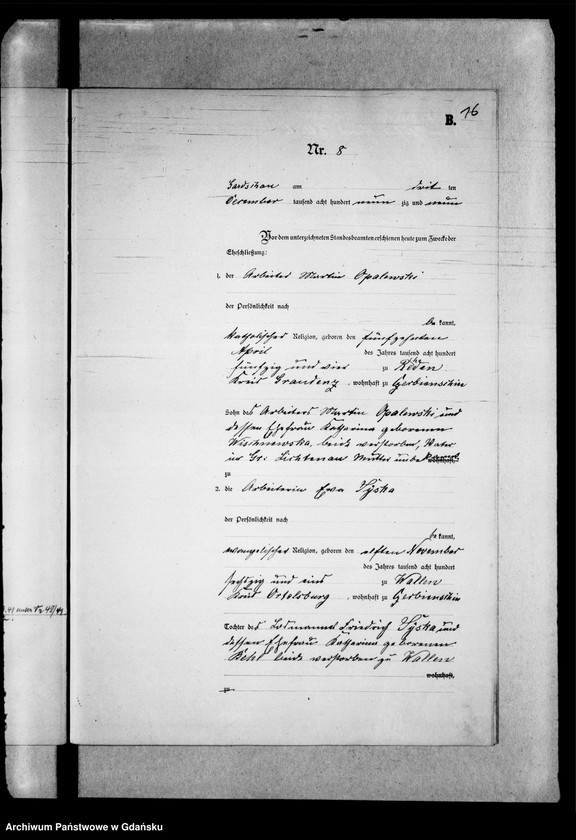 B. 16
Nr. 8
Gardschau am drit ten
December tausend acht hundert neun zig und neun
Vor dem unterzeichneten Standesbeamten erschienen heute zum Zwecke der
Eheschließung:
1. der Arbeiter Martin Opalewski
der Persönlichkeit nach
be kannt,
katholischer Religion, geboren den fünfzehnten
April des Jahres tausend acht hundert
fünfzig und vier zu Rehden
Kreis Graudenz, wohnhaft zu
Sohn des Arbeiters Martin Opalewski und
dessen Ehefrau Katharina geborenen
beide verstorben, Vater
in Gr. Lichtenau Mutter unbekannt wohnhaft,
zu
2. die Arbeiterin Eva Tyska
der Persönlichkeit nach
be kannt,
evangelischer Religion, geboren den elften November
des Jahres tausend acht hundert
sechszig und eins zu Wallen
Kreis Ortelsburg, wohnhaft zu
Tochter des Losmanns Friedrich Tyska und
dessen Ehefrau Katharina geborenen
beide verstorben zu Wallen
wohnhaft,
zu
Archiwum Państwowe w Gdańsku